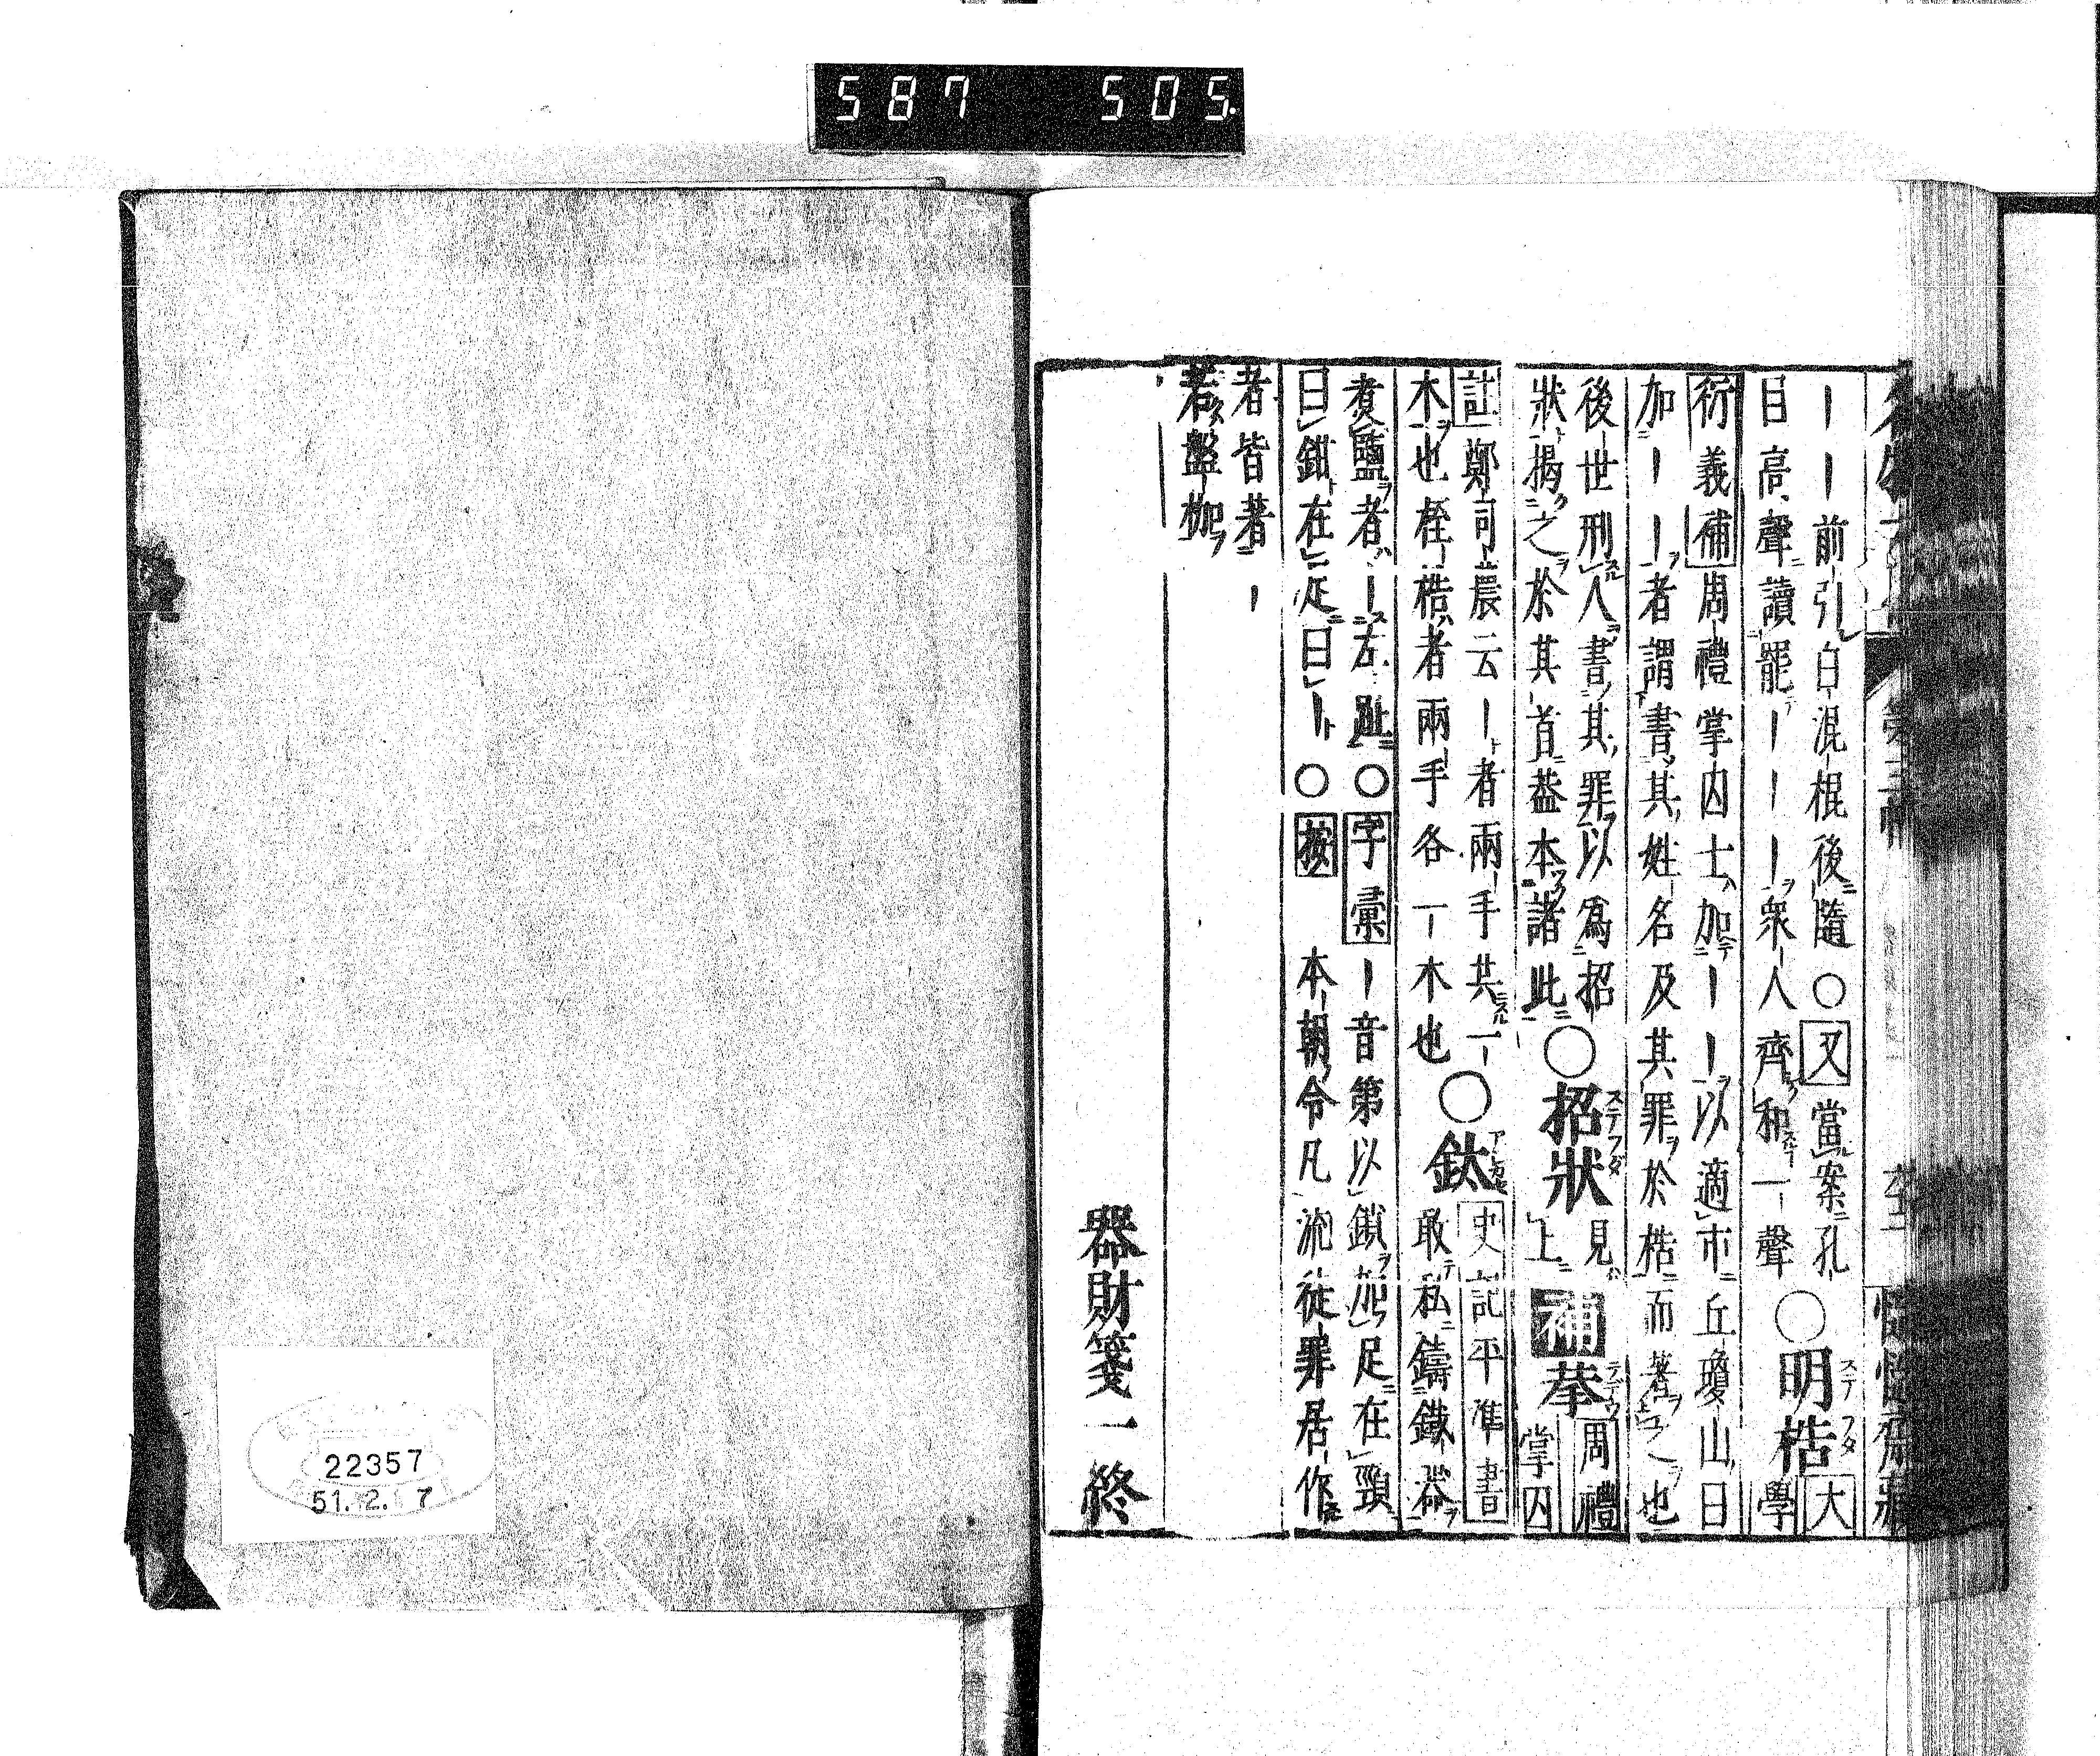 587 505
｜｜前引白混棍後隨○又當案孔
目高聲讀罷｜｜｜衆人齊和一聲
○明梏
大
學
衍義補周禮掌囚士加｜｜以適市丘瓊山曰
加｜｜者謂書其姓名及其罪於梏而著之也
後世刑人書其罪以爲招
狀揭之於其首葢本諸此
○招狀
見
上
補拲
周禮
掌囚
註鄭司農云｜者兩手共一
木也桎梏者兩手各一木也
○釱
史記平準書
敢私鑄鐵器
煑鹽者｜左趾○字彙｜音第以鎖加足在頸
曰鉗在足曰｜○按 本朝令凡流徒罪居作
者皆著｜
若盤枷
器財箋一終
22357
51.2.17